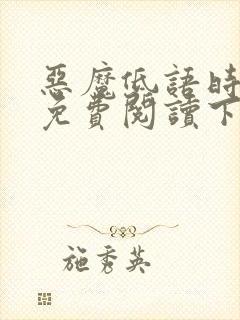 惡魔低語時
免費閱讀下
施秀英